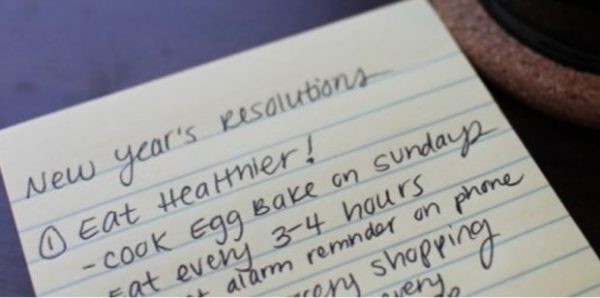 New year's resolutions
① Eat Healthier!
- cook Egg Bake on sundays
Eat every 3-4 hours
alarm remindar on phone
shopping
every